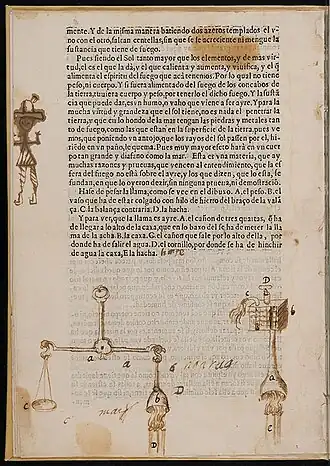 mente. Y de la misma manera batiendo dos azeros templados el v-
no con el otro, saltan centellas, sin que se acreciente ni mengue la
sustancia que tiene de fuego.
Pues siendo el Sol tanto mayor que los elementos, y de mas vir-
tud, el es el que la dà, y el que calienta y aumenta, y viuifica, y el q̃
alimenta el espiritu del fuego que acà tenemos: Por lo qual no tiene
peso, ni cuerpo. Y si fuera alimentado del fuego de los concabos de
la tierra, tuuiera cuerpo y peso, por tenerlo el dicho fuego. Y la sustã
cia que puede dar, es vn humo, o vaho que viene a ser ayre. Y para la
mucha virtud y grandeza que el Sol tiene, no es nada el penetrar la
tierra, y que en lo hondo de la mar tengan las piedras y metales tan
to de fuego, como las que estan en la superficie de la tierra, pues ve
mos, que poniendo vn antojo, que los rayos del sol passen por el, hi-
riendo en vn paño, le quema. Pues muy mayor efeto harà en vn cuer
po tan grande y diafano como la mar. Esta es vna materia, que ay
muchas razones y prueuas, que vienen al entendimiento, que la es
fera del fuego no està sobre el ayre, y los que dizen, que lo està, se
fundan, en que lo oyeron dezir, sin ninguna prueua, ni demostraciõ.
Hase de pesar la llama, como se vee en el dibuxo. A, el peso. B, el
vaso que ha de estar colgado con hilo de hierro del braço de la val-
ça. C, la balança contraria. D, la hacha.
Y para ver, que la llama es ayre. A el cañon de tres quartas, q̃ ha
de llegar a lo alto de la caxa, que en lo baxo del se ha de meter la lla
ma de la acha. B. la caxa. G. el cañon que sale por lo alto della, por
donde ha de salir el agua. D. el tornillo, por donde se ha de hinchir
de agua la caxa, E la hacha.
a
a
b
b
c
c
D
D
a
b
c
D